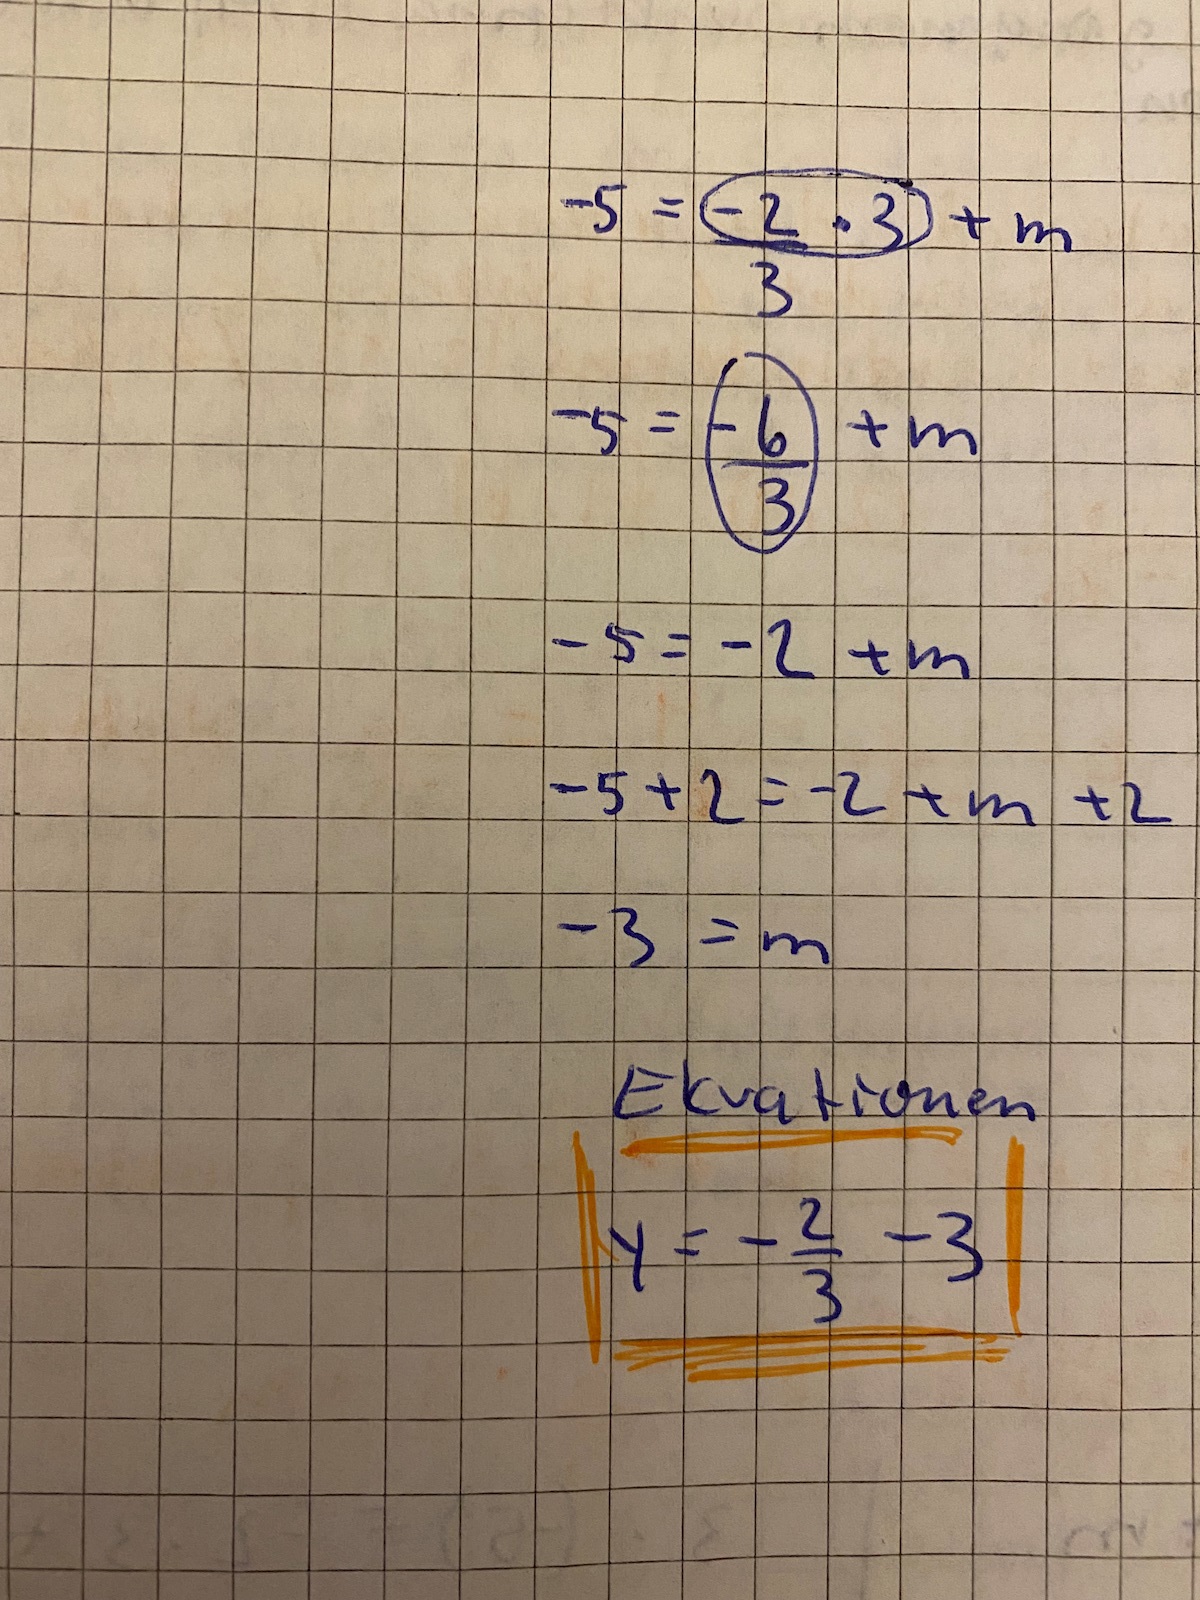 -5 = -2/3 · 3 + m
-5 = -6/3 + m
-5 = -2 + m
-5 + 2 = -2 + m + 2
-3 = m
Ekvationen
y = -2/3 - 3